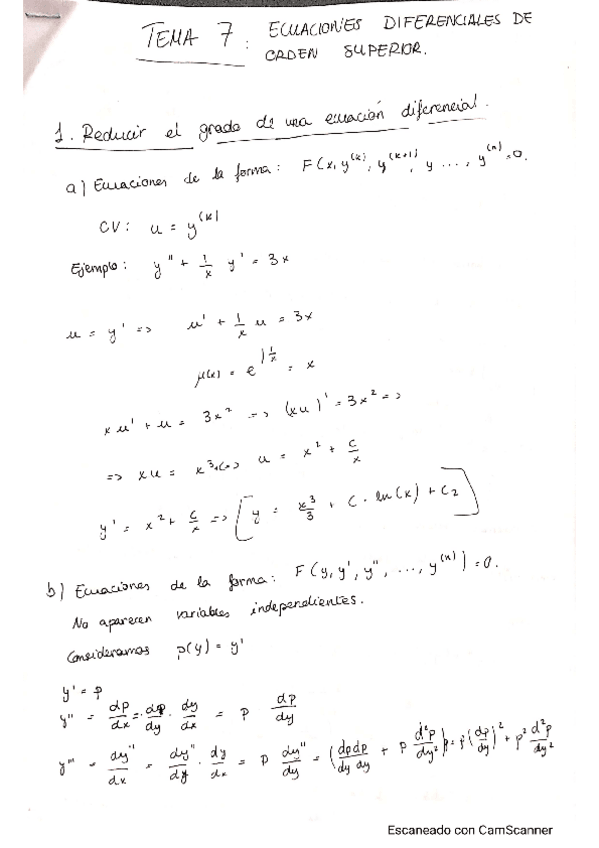 TEMA 7 : ECUACIONES DIFERENCIALES DE
ORDEN SUPERIOR.
1. Reducir el grado de una ecuación diferencial.
a) Ecuaciones de la forma: F(x, y^(k), y^(k+1), y ..., y^(n))=0.
CV: u = y^(k)
Ejemplo: y'' + 1/x y' = 3x
u = y' => u' + 1/x u = 3x
μ(x) = e^∫1/x = x
x u' + u = 3x² => (xu)' = 3x² =>
=> xu = x³+C => u = x² + C/x
y' = x² + C/x => [y = x³/3 + C · ln(x) + C₂]
b) Ecuaciones de la forma: F(y, y', y'', ..., y^(n))=0.
No aparecen variables independientes.
Consideramos p(y) = y'
y' = p
y'' = dp/dx = dp/dy · dy/dx = p dp/dy
y''' = dy''/dx = dy''/dy · dy/dx = p dy''/dy = (dp/dy dp/dy + p d²p/dy²) p = p(dp/dy)² + p² d²p/dy²
Escaneado con CamScanner